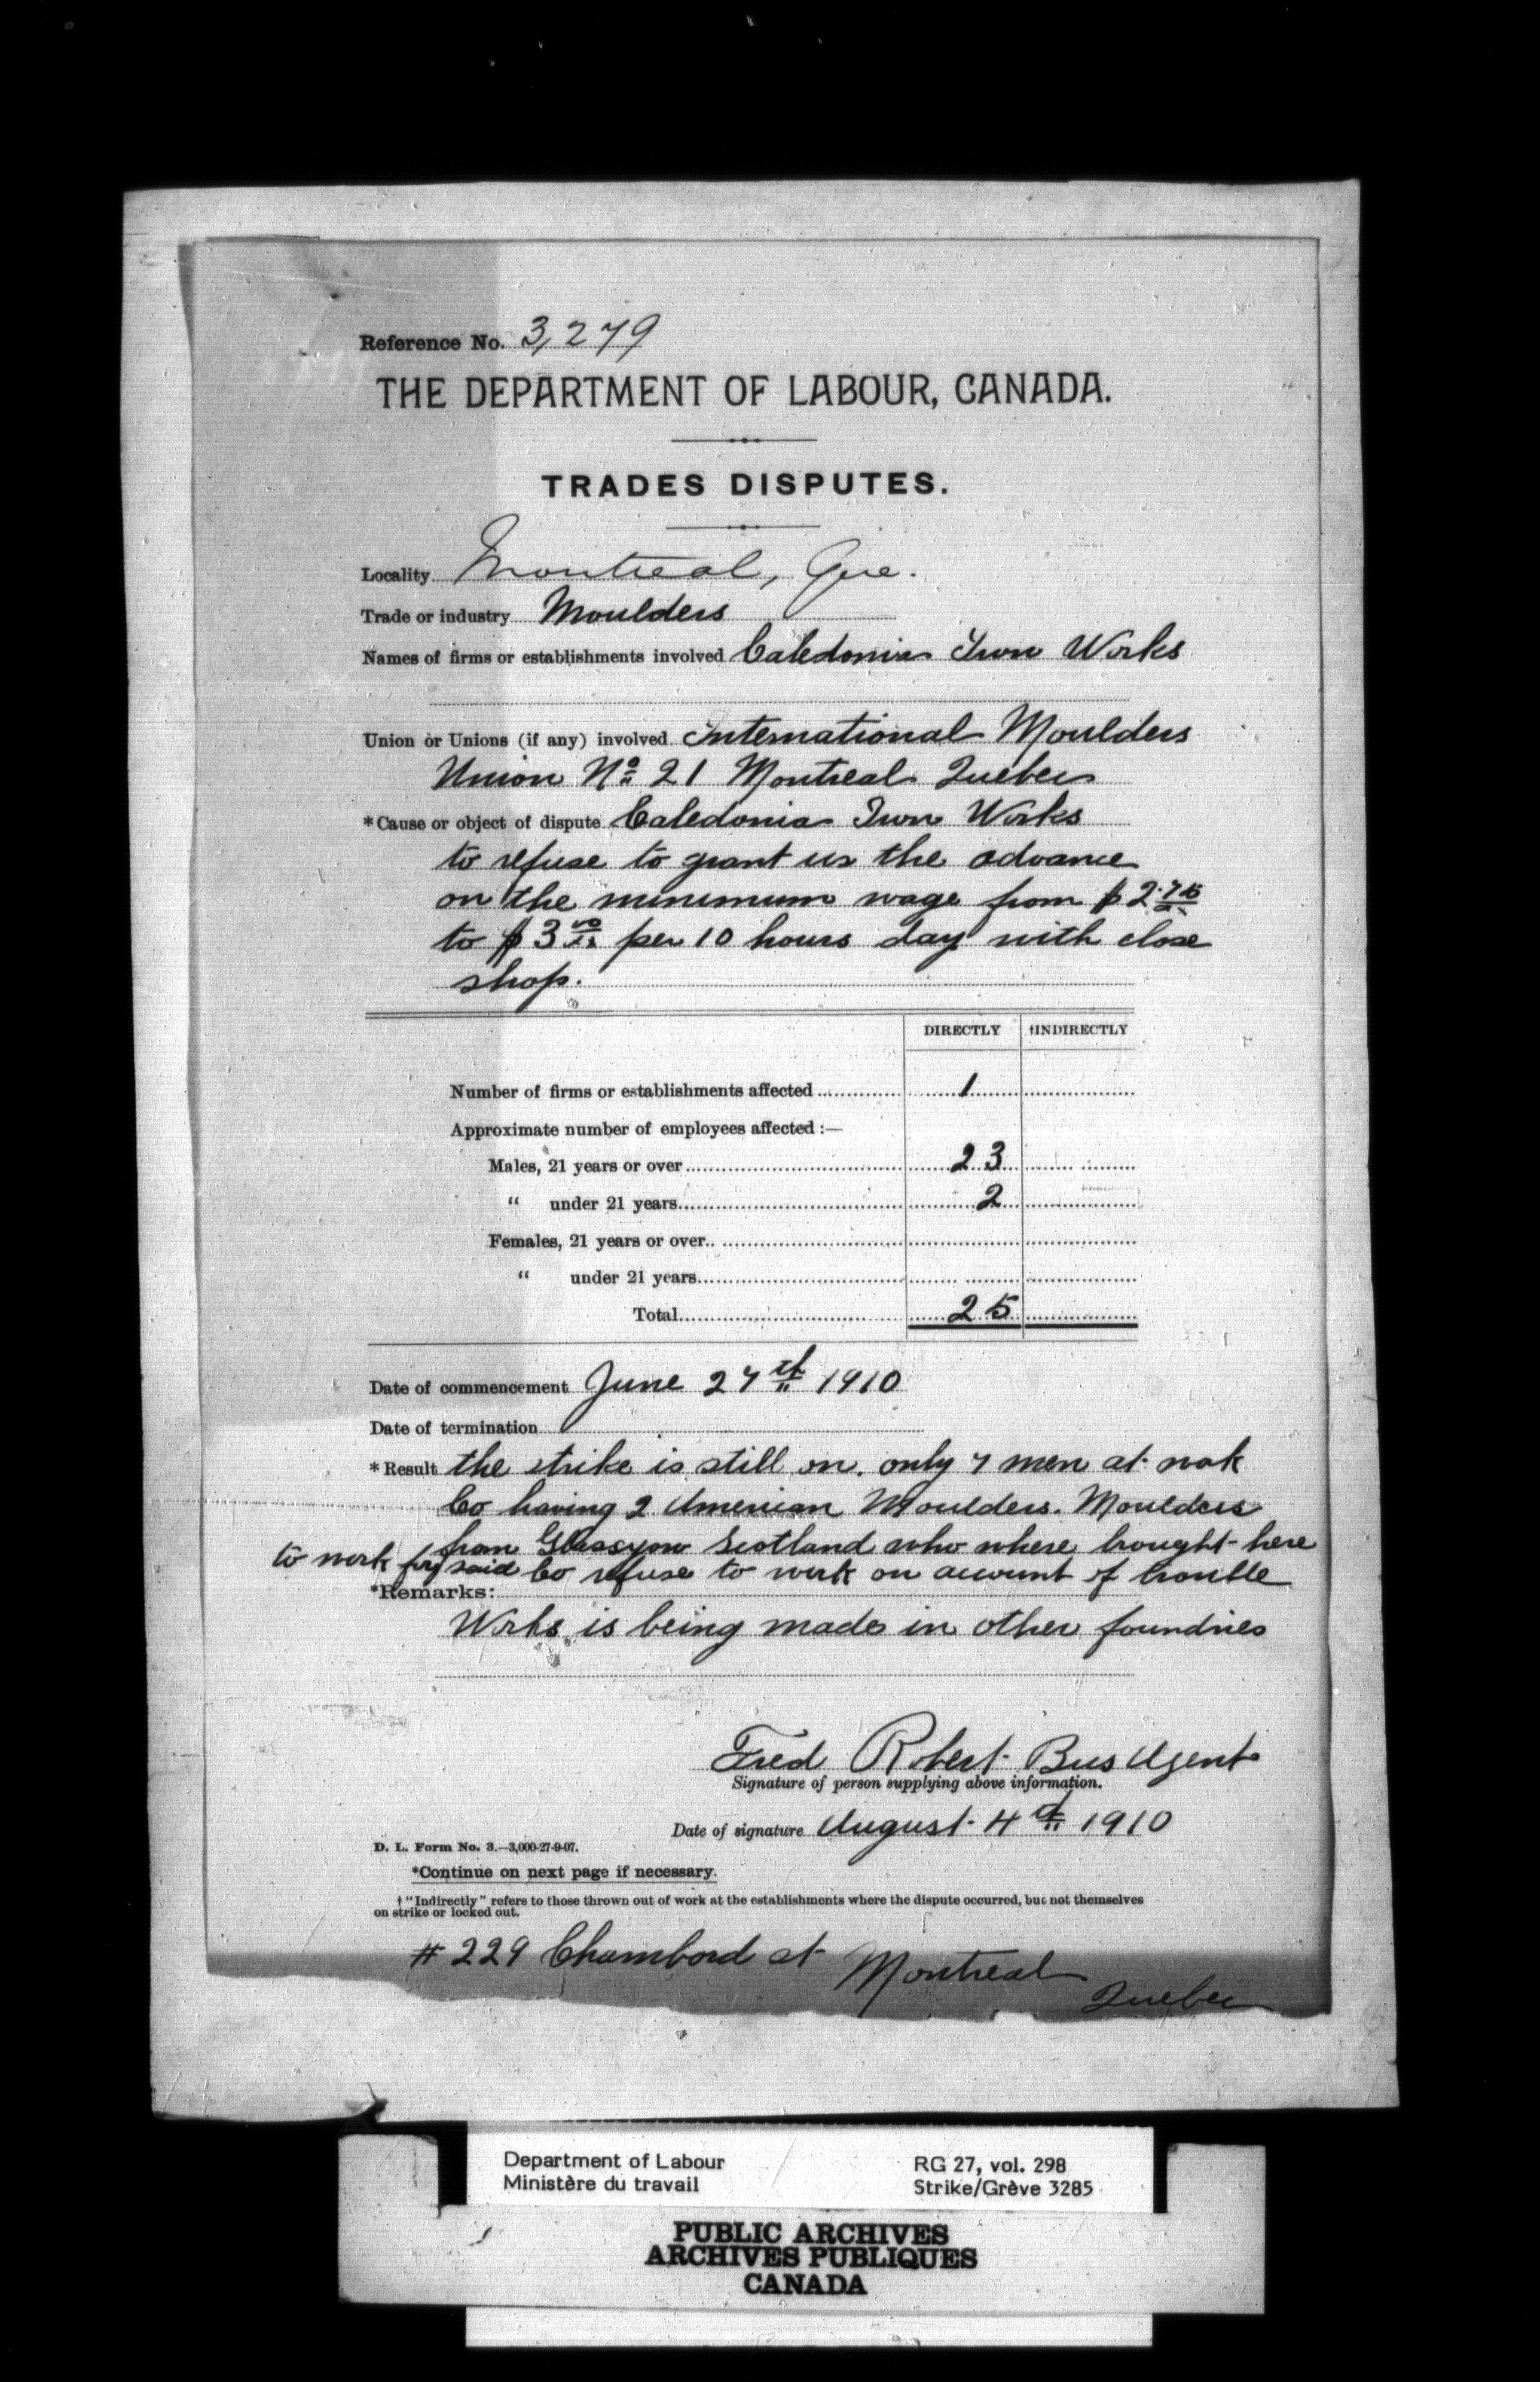 Reference No. 3,279
THE DEPARTMENT OF LABOUR, CANADA.
TRADES DISPUTES.
Locality Montreal, Que.
Trade or industry Moulders
Names of firms or establishments involved Caledonia Iron Works
Union or Unions (if any) involved International Moulders
Union No 21 Montreal Quebec
*Cause or object of dispute Caledonia Iron Works
to refuse to grant us the advance
on the minimum wage from $2.75
to $3.00 per 10 hours day with close
shop.
DIRECTLY †INDIRECTLY
Number of firms or establishments affected 1
Approximate number of employees affected :—
Males, 21 years or over 23
“ under 21 years 2
Females, 21 years or over
“ under 21 years
Total 25
Date of commencement June 27th 1910
Date of termination
*Result the strike is still on. only 7 men at work
Co having 2 American Moulders. Moulders
from Glasgow Scotland who where brought here
to work for said Co refuse to work on account of trouble
*Remarks:
Works is being made in other foundries
Fred Robert Bus Agent
Signature of person supplying above information.
Date of signature August 4th 1910
D. L. Form No. 3.—3,000-27-9-07.
*Continue on next page if necessary.
† “Indirectly” refers to those thrown out of work at the establishments where the dispute occurred, but not themselves
on strike or locked out.
# 229 Chambord st Montreal
Quebec
Department of Labour
Ministère du travail
RG 27, vol. 298
Strike/Grève 3285
PUBLIC ARCHIVES
ARCHIVES PUBLIQUES
CANADA